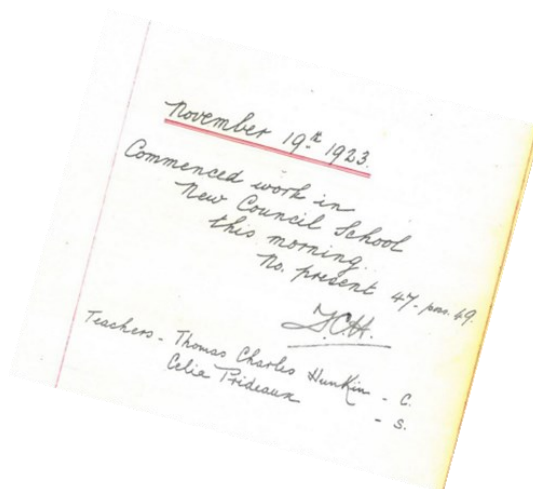 November 19th 1923.
Commenced work in
New Council School
this morning.
No. present 47 - pm. 49.
T.C.H.
Teachers - Thomas Charles Hunkin - C.
Celia Prideaux - S.